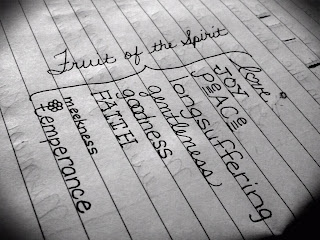 Fruit of the Spirit
love
JOY
PEACE
longsuffering
gentleness
goodness
FAITH
meekness
temperance